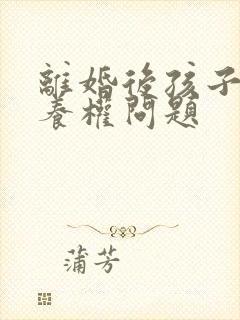 離婚後孩子
養權問題
蒲芳